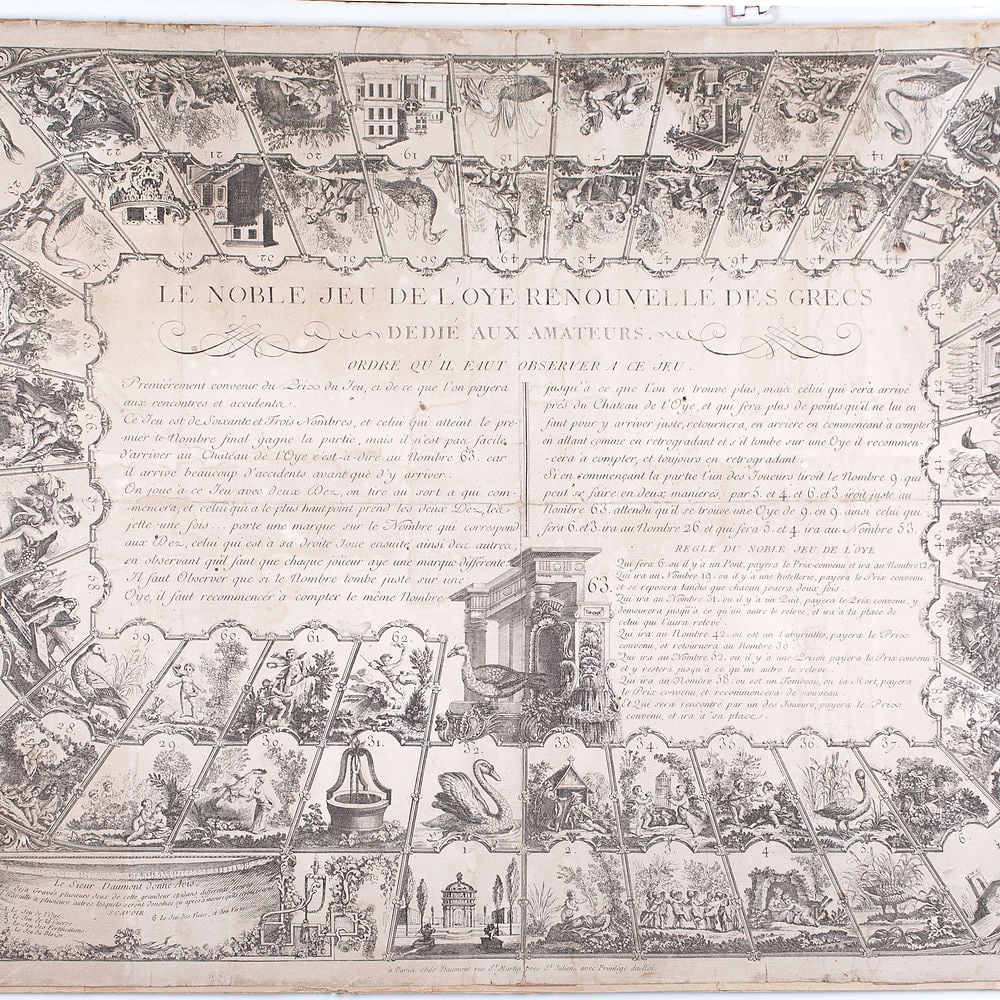 LE NOBLE JEU DE L'OYE RENOUVELLÉ DES GRECS
DEDIÉ AUX AMATEURS.
ORDRE QU'IL FAUT OBSERVER A CE JEU.
Premièrement convenir du Prix du Jeu, et de ce que l'on payera
aux rencontres et accidents.
Ce Jeu est de Soixante et Trois Nombres, et celui qui atteint le pre-
mier le Nombre final gagne la partie, mais il n'est pas facile
d'arriver au Chateau de l'Oye c'est-à-dire au Nombre 63. car
il arrive beaucoup d'accidents avant que d'y arriver.
On joue à ce Jeu avec deux Dez, on tire au sort a qui com-
mencera, et celui qui a le plus haut point prend les deux Dez, les
jette une fois... porte une marque sur le Nombre qui correspond
aux Dez, celui qui est à sa droite Joue ensuite, ainsi des autres,
en observant qu'il faut que chaque joueur aye une marque différente.
Il faut Observer que si le Nombre tombe juste sur une
Oye, il faut recommencer à compter le même Nombre
jusqu'à ce que l'on en trouve plus, mais celui qui sera arrivé
près du Chateau de l'Oye, et qui fera plus de points qu'il ne lui en
faut pour y arriver juste, retournera, en arriere en commencant à compter
en allant comme en retrogradant et s'il tombe sur une Oye il recommen-
cera à compter, et toujours en retrogradant.
Si en commençant la partie l'un des Joueurs tiroit le Nombre 9. qui
peut se faire en deux manieres; par 5. et 4 et 6. et 3. iroit juste au
Nombre 63. attendu qu'il se trouve une Oye de 9. en 9. ainsi celui qui
fera 6. et 3. ira au Nombre 26 et qui fera 5. et 4. ira au Nombre 53.
REGLE DU NOBLE JEU DE L'OYE
Qui fera 6. ou il y a un Pont, payera le Prix convenu et ira au Nombre 12
Qui ira au Nombre 19. ou il y a une hotellerie, payera le Prix convenu.
se reposera tandis que chacun jouera deux fois.
Qui ira au Nombre 31. ou il y a un Puit, payera le Prix convenu, y
demeurera jusqu'à ce qu'un autre le releve, et ira à la place de
celui qui l'aura relevé.
Qui ira au Nombre 42. ou est un l'abyrinthe, payera le Prix
convenu, et retournera au Nombre 30.
Qui ira au Nombre 52. ou il y a une Prison payera le Prix convenu
et y restera jusqu'à ce qu'un autre le releve.
Qui ira au Nombre 58. ou est un Tombeau, ou la Mort, payera
le Prix convenu, et recommencera de nouveau.
Et Qui sera rencontré par un des Joueurs, payera le Prix
convenu, et ira à sa place.
63.
22.
21
20
19
18
17.
16
15
14
25
26
28
58
52
50
49
48
46
45
44
59.
60.
61.
62.
29.
30.
31.
32.
33.
34.
35.
36.
37.
1.
2.
3.
4.
6
Le Sieur Daumont donne Avis
SCAVOIR
à Paris chés Daumont rue St. Martin près St. Julien, avec Privilege du Roi